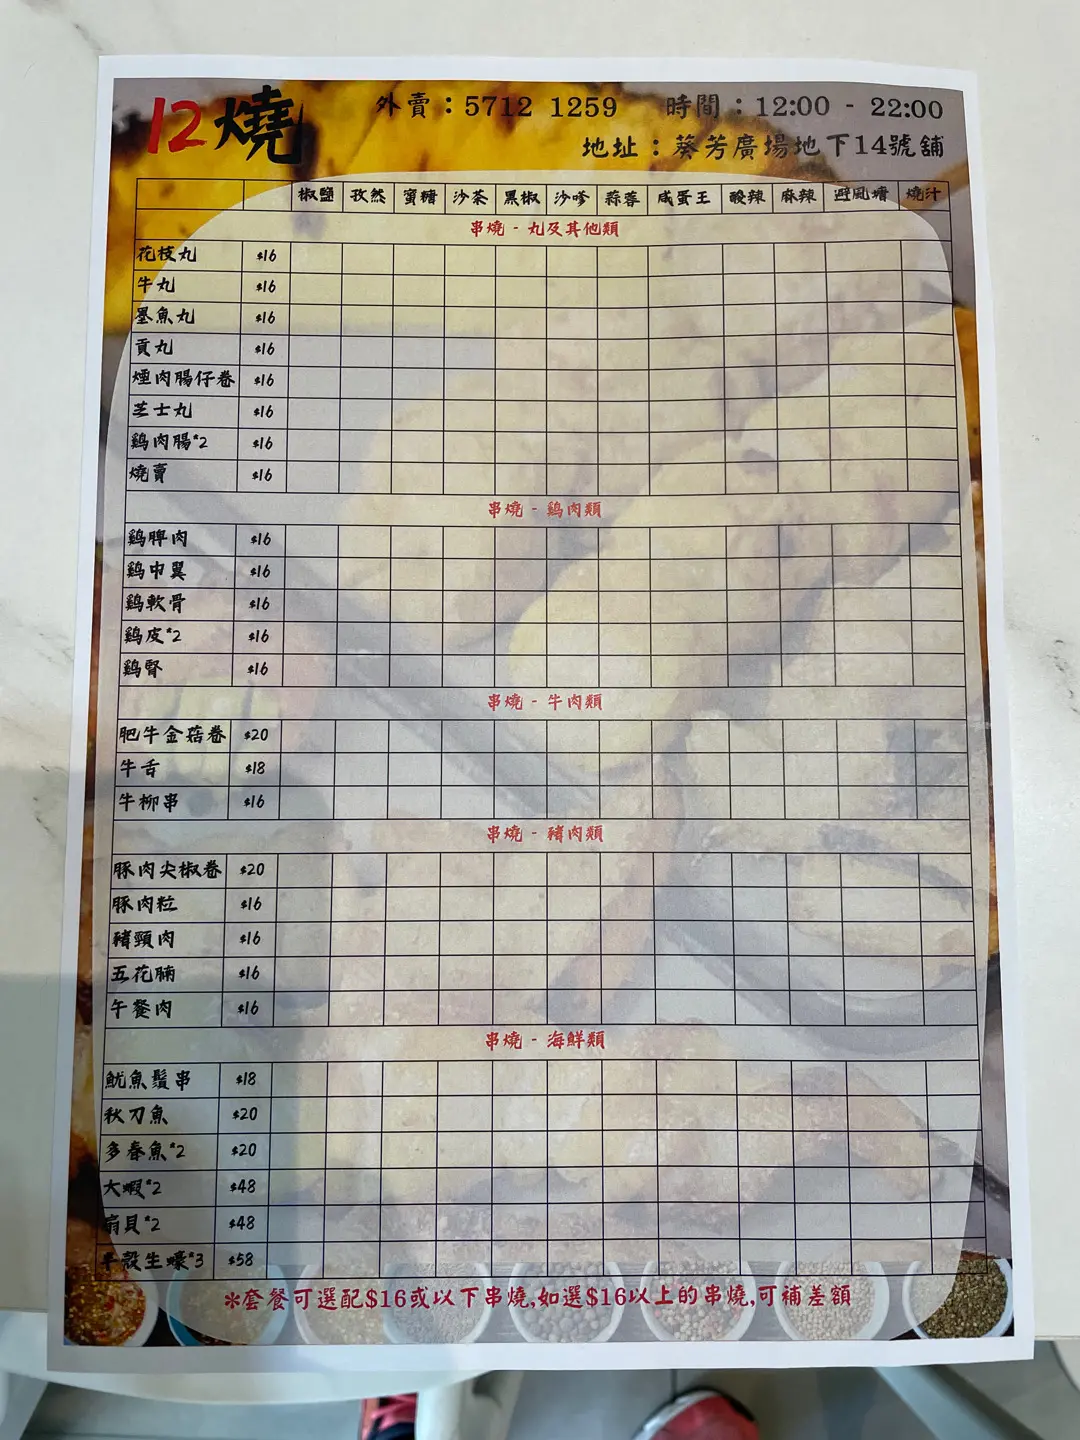 12燒
外賣：5712 1259 時間：12:00 - 22:00
地址：葵芳廣場地下14號舖
椒鹽 孜然 蜜糖 沙茶 黑椒 沙嗲 蒜蓉 咸蛋王 酸辣 麻辣 避風塘 燒汁
串燒 - 丸及其他類
花枝丸 $16
牛丸 $16
墨魚丸 $16
貢丸 $16
煙肉腸仔卷 $16
芝士丸 $16
雞肉腸*2 $16
燒賣 $16
串燒 - 鷄肉類
鷄髀肉 $16
鷄中翼 $16
鷄軟骨 $16
鷄皮*2 $16
鷄腎 $16
串燒 - 牛肉類
肥牛金菇卷 $20
牛舌 $18
牛柳串 $16
串燒 - 豬肉類
豚肉尖椒卷 $20
豚肉粒 $16
豬頸肉 $16
五花腩 $16
午餐肉 $16
串燒 - 海鮮類
魷魚鬚串 $18
秋刀魚 $20
多春魚*2 $20
大蝦*2 $48
扇貝*2 $48
半殼生蠔*3 $58
*套餐可選配$16或以下串燒,如選$16以上的串燒,可補差額